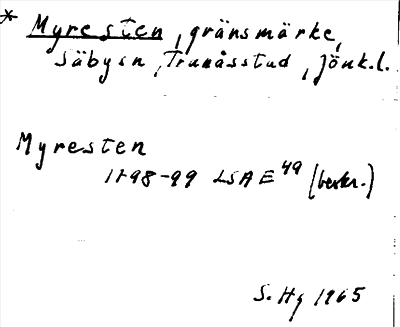 * Myresten, gränsmärke,
Säbysn, Tranåsstud, Jönk.l.
Myresten
1798-99 LSA E49 (beskr.)
S. Hg 1965